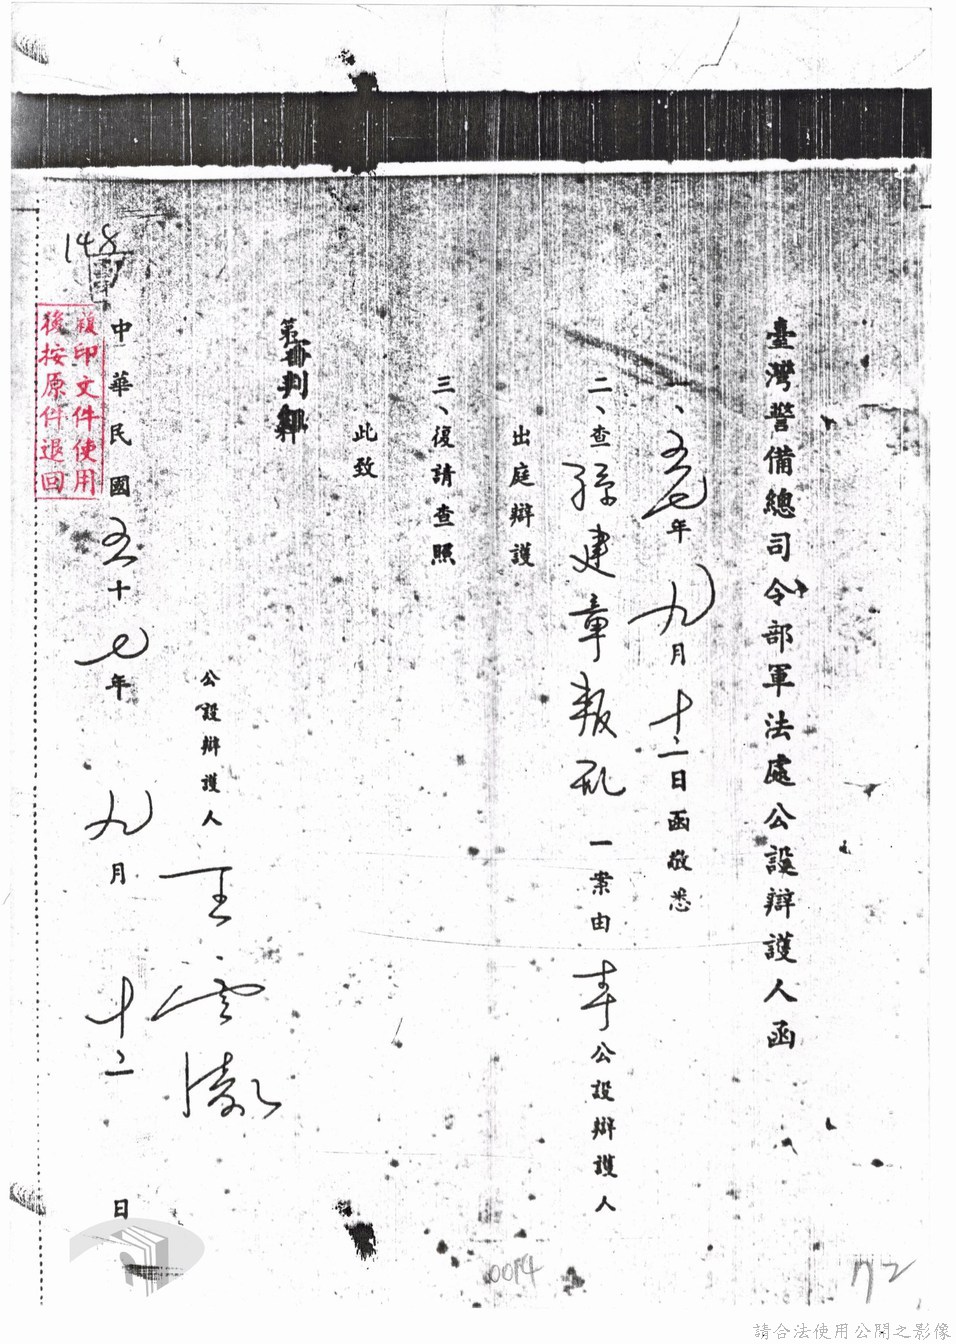 臺灣警備總司令部軍法處公設辯護人函
一、五七年九月十二日函敬悉
二、查孫建章叛乱一案由本公設辯護人
出庭辯護
三、復請查照
此致
公設辯護人王雲
中華民國五十七年九月十二日
148
複印文件使用
後按原件退回
0014
72
請合法使用公開之影像